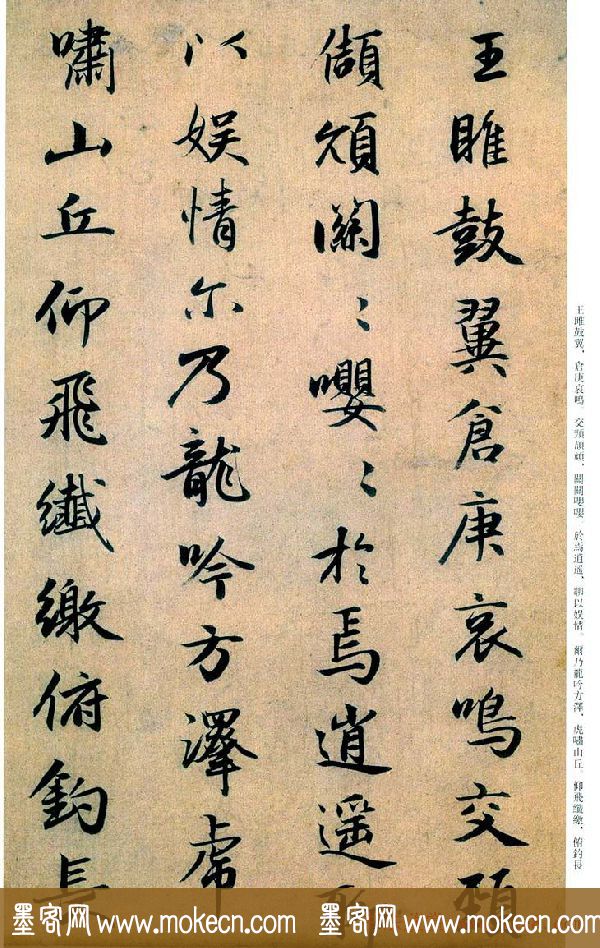 王雎鼓翼倉庚哀鳴交頸
頡頏關〻嚶〻於焉逍遥聊
以娱情尔乃龍吟方澤虎
嘯山丘仰飛纖繳俯釣長
王雎鼓翼，倉庚哀鳴，交頸頡頏，關關嚶嚶，於焉逍遥，聊以娱情，爾乃龍吟方澤，虎嘯山丘，仰飛纖繳，俯釣長
墨客网 www.mokecn.com 墨客网 www.mokecn.com